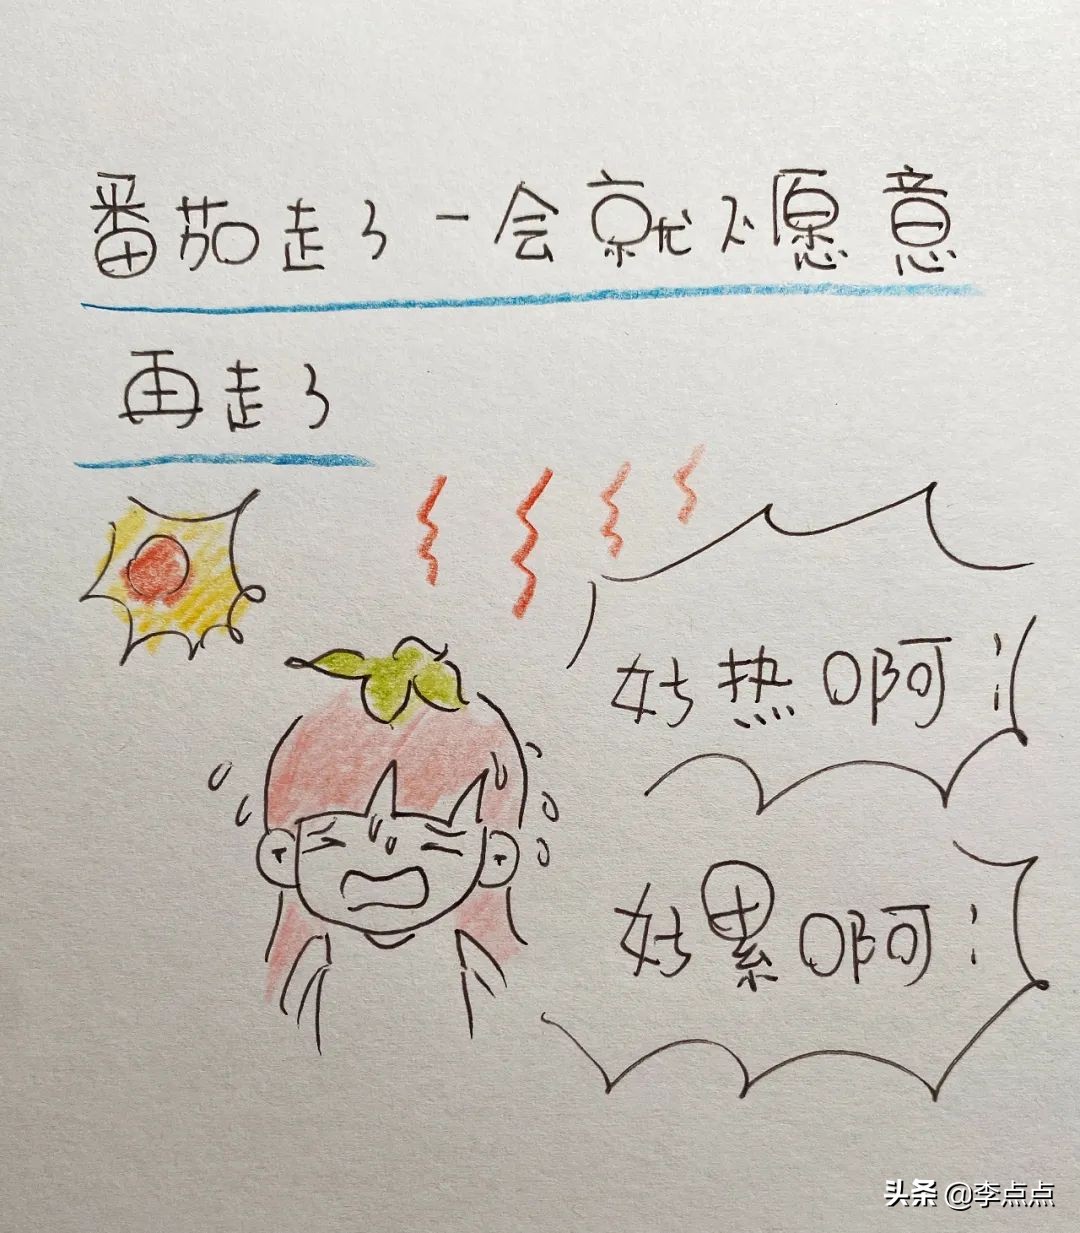 番茄走了一会就不愿意
再走了
好热啊!
好累啊!
头条 @李点点